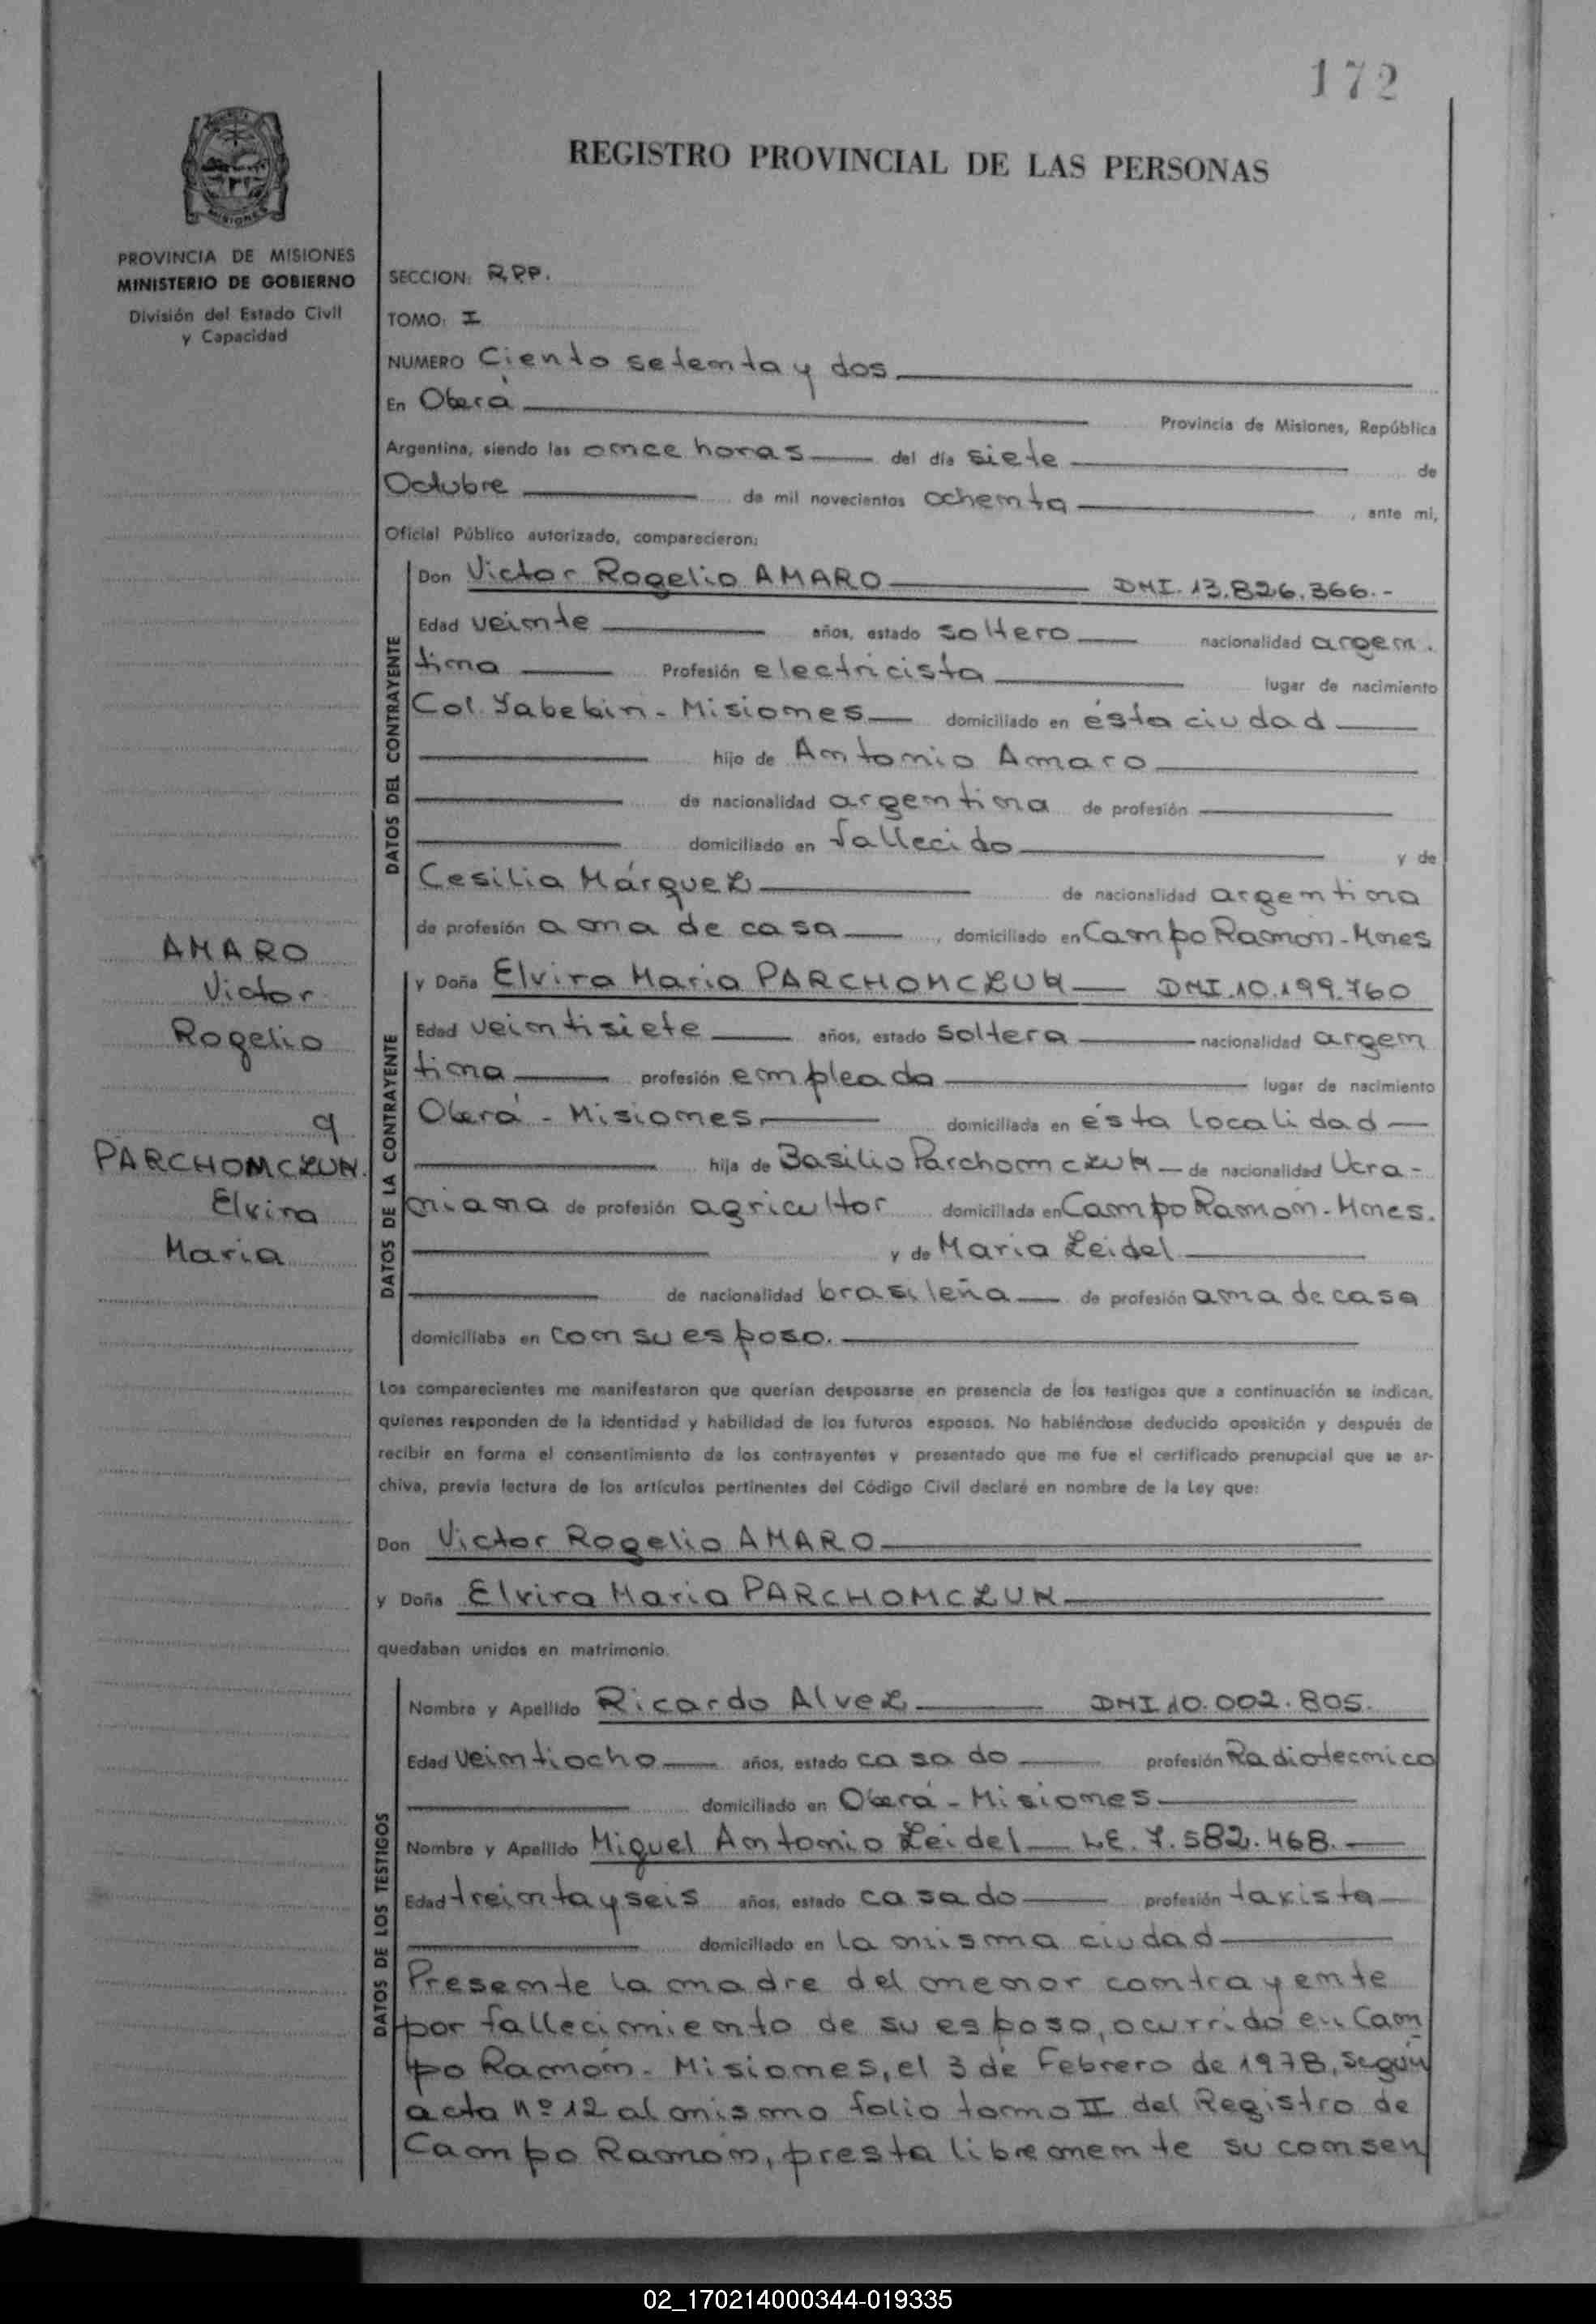 172
REGISTRO PROVINCIAL DE LAS PERSONAS
MISIONES
PROVINCIA DE MISIONES
MINISTERIO DE GOBIERNO
División del Estado Civil
y Capacidad
SECCION: R.P.P.
TOMO: I
NUMERO Ciento setenta y dos
En Oberá Provincia de Misiones, República
Argentina, siendo las once horas del día siete de
Octubre de mil novecientos ochenta, ante mi,
Oficial Público autorizado, comparecieron:
DATOS DEL CONTRAYENTE
Don Victor Rogelio AMARO DNI. 13.826.366.-
Edad veinte años, estado soltero nacionalidad argen.
tina Profesión electricista lugar de nacimiento
Col. Yabebiri - Misiones domiciliado en ésta ciudad
hijo de Antonio Amaro
de nacionalidad argentina de profesión
domiciliado en fallecido y de
Cesilia Márquez de nacionalidad argentina
de profesión ama de casa, domiciliado en Campo Ramón - Mnes
AMARO
Victor
Rogelio
y
PARCHOMCZUK.
Elvira
Maria
DATOS DE LA CONTRAYENTE
y Doña Elvira Maria PARCHOMCZUK DNI. 10.199.760
Edad veintisiete años, estado soltera nacionalidad argen
tina profesión empleada lugar de nacimiento
Oberá - Misiones domiciliada en ésta localidad
hija de Basilio Parchomczuk de nacionalidad Ucra-
niana de profesión agricultor domiciliada en Campo Ramón - Mnes.
y de Maria Leidel
de nacionalidad brasileña de profesión ama de casa
domiciliaba en con su esposo.
Los comparecientes me manifestaron que querían desposarse en presencia de los testigos que a continuación se indican,
quienes responden de la identidad y habilidad de los futuros esposos. No habiéndose deducido oposición y después de
recibir en forma el consentimiento de los contrayentes y presentado que me fue el certificado prenupcial que se ar-
chiva, previa lectura de los artículos pertinentes del Código Civil declaré en nombre de la Ley que:
Don Victor Rogelio AMARO
y Doña Elvira Maria PARCHOMCZUK
quedaban unidos en matrimonio.
DATOS DE LOS TESTIGOS
Nombre y Apellido Ricardo Alvez DNI 10.002.805.
Edad veintiocho años, estado casado profesión Radiotecnico
domiciliado en Oberá - Misiones
Nombre y Apellido Miguel Antonio Leidel LE. 7.582.468.
Edad treinta y seis años, estado casado profesión taxista
domiciliado en la misma ciudad
Presente la madre del menor contrayente
por fallecimiento de su esposo, ocurrido en Cam
po Ramón - Misiones, el 3 de Febrero de 1978, según
acta nº 12 al mismo folio tomo II del Registro de
Campo Ramón, presta libremente su consen
02_170214000344-019335